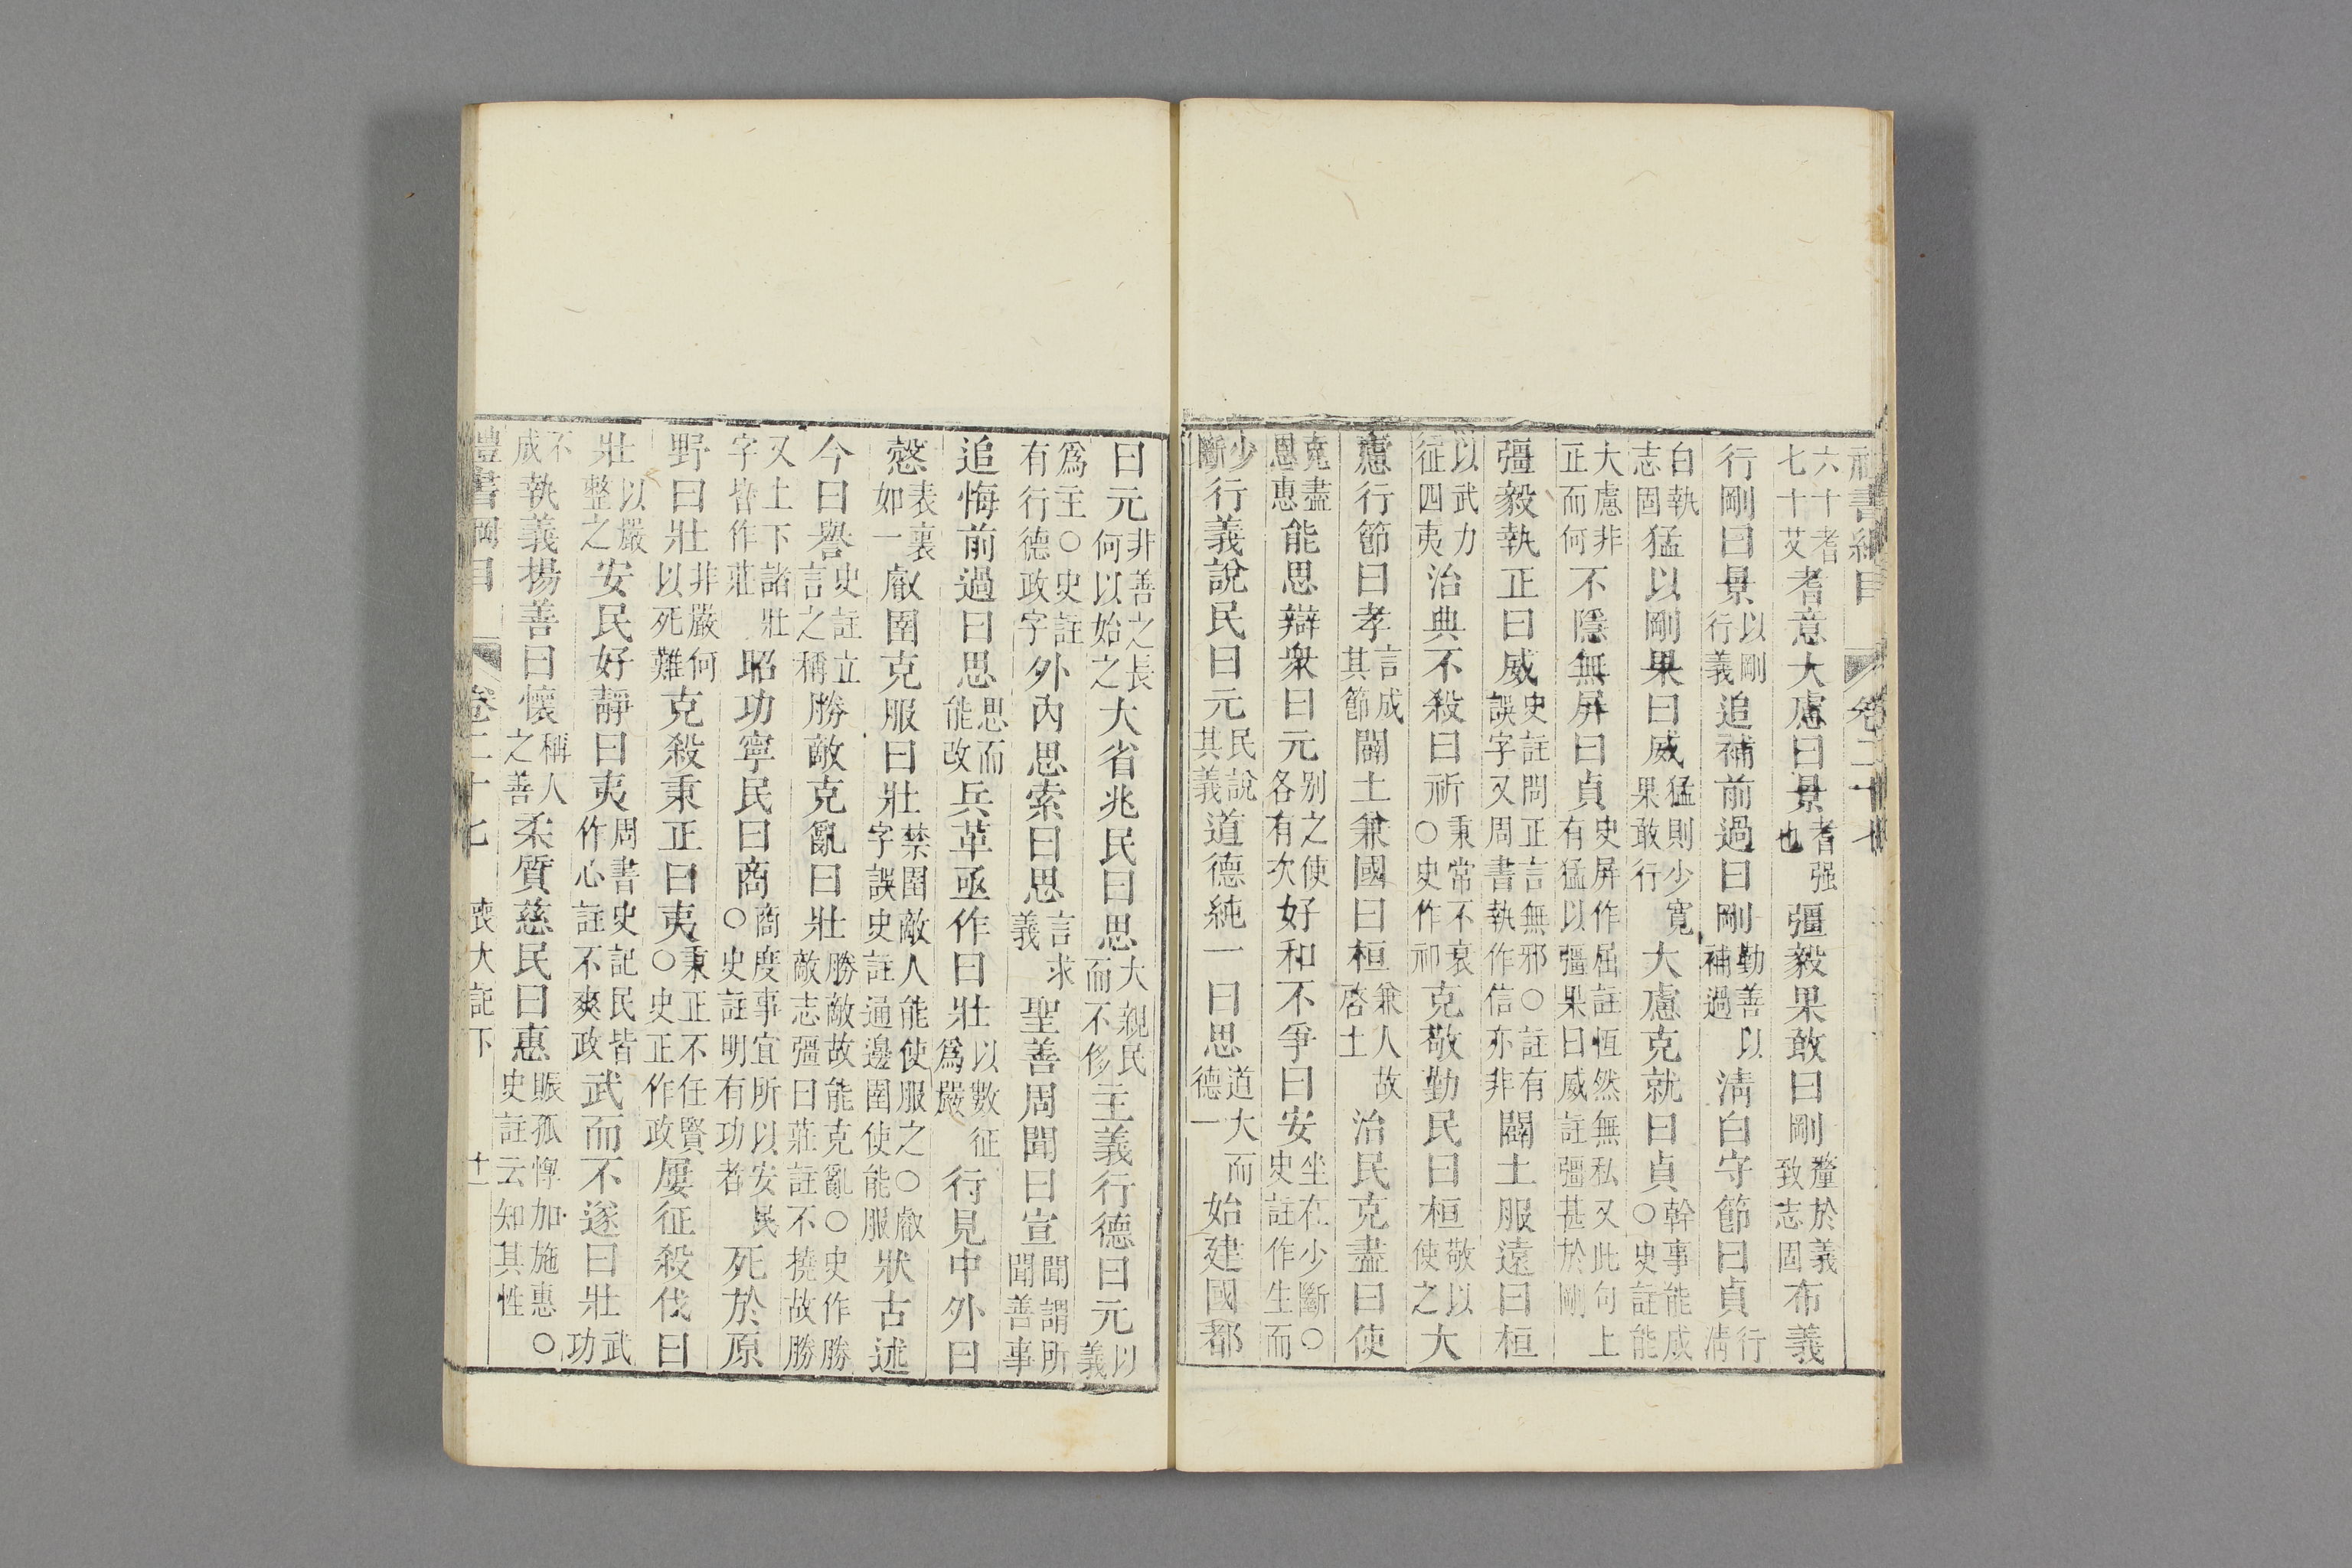 禮書綱目 卷二十七
六十耆七十艾耆意大慮曰景耆强也彊毅果敢曰剛釐於義致志固布義
行剛曰景以剛行義追補前過曰剛勤善以補過清白守節曰貞行清
白執志固猛以剛果曰威猛則少寬果敢行大慮克就曰貞幹事能成○史註能
大慮非正而何不隱無屏曰貞史屏作屈註恆然無私又此句上有猛以彊果曰威註彊甚於剛
彊毅執正曰威史註問正言無邪○註有誤字又周書執作信亦非闢土服遠曰桓
以武力征四夷治典不殺曰祈秉常不衰○史作祁克敬勤民曰桓敬以使之大
慮行節曰孝言成其節闢土兼國曰桓兼人故啓土治民克盡曰使
克盡恩惠能思辯衆曰元别之使各有次好和不爭曰安坐在少斷○史註作生而
少斷行義說民曰元民說其義道德純一曰思道大而德一始建國都
曰元非善之長何以始之大省兆民曰思大親民而不侈主義行德曰元以義
爲主○史註有行德政字外內思索曰思言求義聖善周聞曰宣聞謂所聞善事
追悔前過曰思思而能改兵革亟作曰壯以數征爲嚴行見中外曰
慤表裏如一叡圉克服曰壯禁圉敵人能使服之○叡字誤史註通邊圉使能服狀古述
今曰譽史註立言之稱勝敵克亂曰壯勝敵故能克亂○史作勝敵志彊曰莊註不撓故勝
又土下諸壯字皆作莊昭功寧民曰商商度事宜所以安民○史註明有功者死於原
野曰壯非嚴何以死難克殺秉正曰夷秉正不任賢○史正作政屢征殺伐曰
壯以嚴整之安民好靜曰夷周書史記民皆作心註不爽政武而不遂曰壯武功
不成執義揚善曰懷稱人之善柔質慈民曰惠賑孤惸加施惠○史註云知其性
禮書綱目 卷二十七 喪大記下 十一